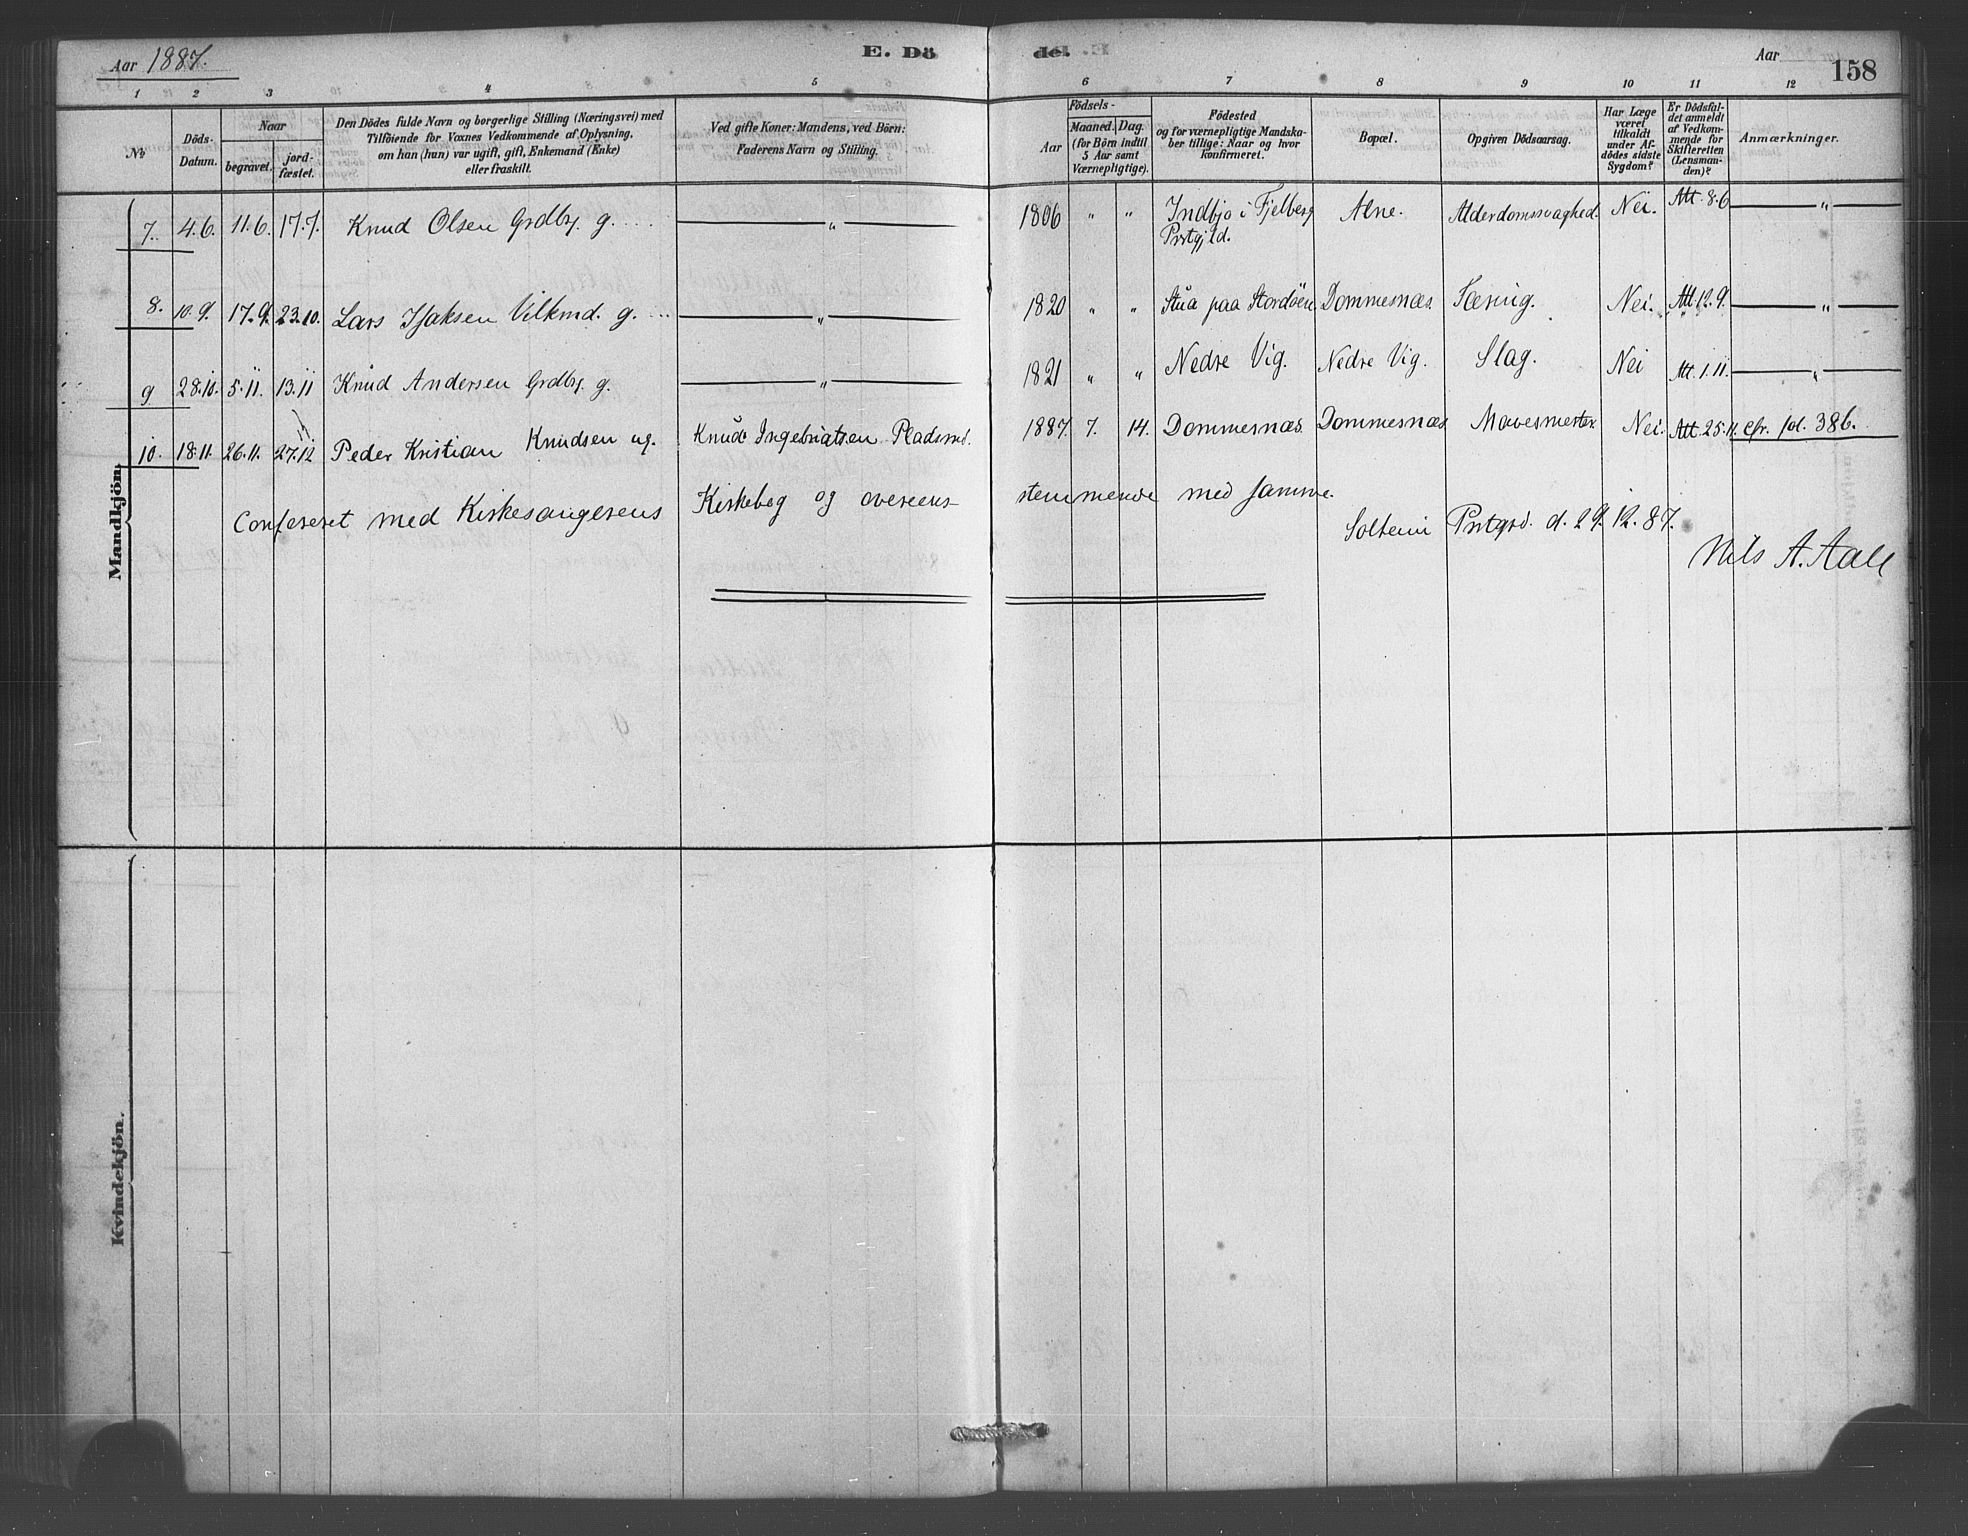 Aar 1887.
E. Dö
de.
Aar
158
1 2 3 4 5 6 7 8 9 10 11 12
No
Döds-
Datum.
Naar
begravet.
jord-
fæstet.
Den Dödes fulde Navn og borgerlige Stilling (Næringsvei) med
Tilföiende for Voxnes Vedkommende af Oplysning,
om han (hun) var ugift, gift, Enkemand (Enke)
eller fraskilt.
Ved gifte Koner: Mandens, ved Börn:
Faderens Navn og Stilling.
Födsels-
Aar
Maaned. Dag.
(for Börn indtil
5 Aar samt
Værnepligtige).
Födested
og for værnepligtige Mandska-
ber tillige: Naar og hvor
konfirmeret.
Bopæl.
Opgiven Dödsaarsag.
Har Læge
været
tilkaldt
under Af-
dödes sidste
Sygdom?
Er Dödsfal-
det anmeldt
af Vedkom-
mende for
Skifteretten
(Lensman-
den)?
Anmærkninger.
Mandkjön.
7. 4.6. 11.6. 17.7. Knud Olsen Grdbr. g. " 1806 " " Indbjo i Fjelberg Alne. Alderdomssvaghed. Nei. Att. 8.6 "
Prstgjld.
8. 10.9. 17.9. 23.10. Lars Isaksen Vilkmd. g. " 1820 " " Stua paa Stordöen Dommesnæs. Tæring. Nei. Att. 12.9. "
9 28.10. 5.11. 13.11 Knud Andersen Grdbr. g. " 1821 " " Nedre Vig. Nedre Vig. Slag. Nei Att. 1.11. "
10. 18.11. 26.11. 27.12 Peder Kristian Knudsen ug. Knud Ingebrigtsen Pladsmd. 1887. 7. 14. Dommesnæs. Dommesnæs. Mavesmerter Nei. Att. 25.11. cfr. fol. 386.
Confereret med Kirkesangerens Kirkebog og overeens- stemmende med samme.
Soltein Prstgrd. d. 29.12.87.
Nils A. Aall
Kvindekjön.